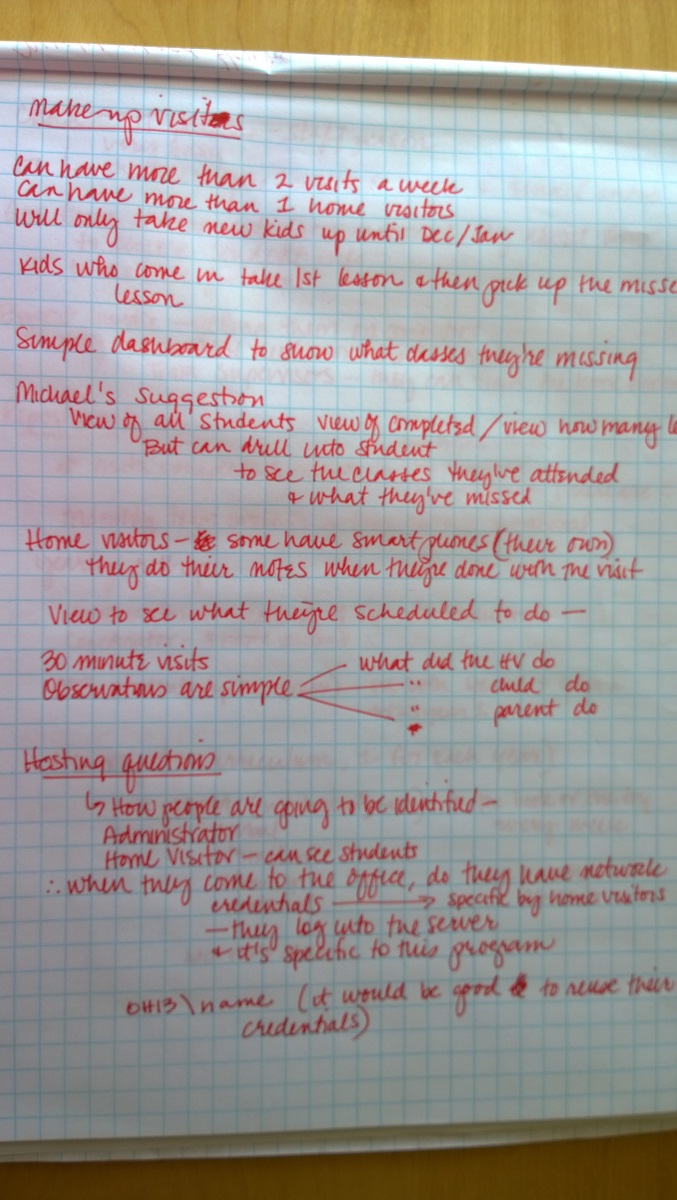 Makeup visits
Can have more than 2 visits a week
Can have more than 1 home visitors
Will only take new kids up until Dec/Jan
Kids who come in take 1st lesson & then pick up the misse
lesson
Simple dashboard to show what classes they're missing
Michael's Suggestion
View of all students view of completed / view how many le
But can drill into student
to see the classes they've attended
& what they've missed
Home visitors - some have smart phones (their own)
they do their notes when they're done with the visit
View to see what they're scheduled to do —
30 minute visits
what did the HV do
Observations are simple
" child do
" parent do
Hosting questions
↳ How people are going to be identified -
Administrator
Home Visitor - can see students
∴ when they come to the office, do they have network
credentials → specific by home visitors
- they log into the server
& it's specific to this program
OH13\name (it would be good to reuse their
credentials)